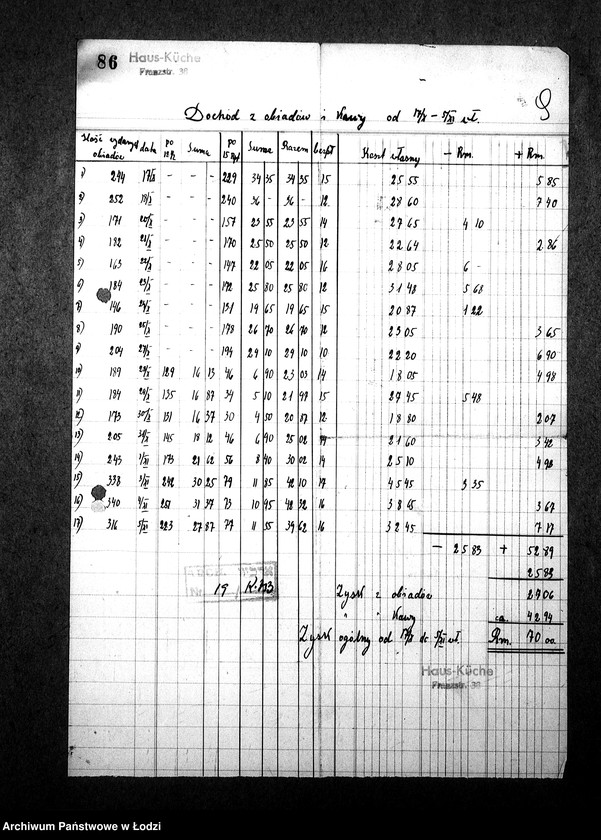 86 Haus-Küche
Franzstr. 38
Dochód z obiadów i Kawy od 17/X – 5/XI wł.
Ilość wydanych obiadów data po 12 Pf. Suma po 15 Rpf Suma Razem bezpł Koszt własny – Rm. + Rm.
1) 244 17/X - - - 229 34 35 34 35 15 25 55 5 85
2) 252 18/X - - - 240 36 - 36 - 12 28 60 7 40
3) 171 20/X - - - 157 23 55 23 55 14 27 65 4 10
4) 182 21/X - - - 170 25 50 25 50 12 22 64 2 86
5) 163 22/X - - - 147 22 05 22 05 16 28 05 6 -
6) 184 23/X - - - 172 25 80 25 80 12 31 48 5 68
7) 146 24/X - - - 131 19 65 19 65 15 20 87 1 22
8) 190 25/X - - - 178 26 70 26 70 12 23 05 3 65
9) 204 27/X - - - 194 29 10 29 10 10 22 20 6 90
10) 189 28/X 129 16 13 46 6 90 23 03 14 18 05 4 98
11) 184 29/X 135 16 87 34 5 10 21 97 15 27 45 5 48
12) 173 30/X 131 16 37 30 4 50 20 87 12 18 80 2 07
13) 205 31/X 145 18 12 46 6 90 25 02 14 21 60 3 42
14) 243 1/XI 173 21 62 56 8 40 30 02 14 25 10 4 92
15) 338 3/XI 242 30 25 79 11 85 42 10 17 45 45 3 35
16) 340 4/XI 251 31 37 73 10 95 42 32 16 38 65 3 67
17) 316 5/XI 223 27 87 77 11 55 39 62 16 32 45 7 17
– 25 83 + 52 89
25 83
Zysk z obiadów 27 06
" " Kawy ca. 42 94
19 K.43
Zysk ogólny od 17/X do 5/XI wł. Rm. 70 00
Haus-Küche
Franzstr. 38
Archiwum Państwowe w Łodzi